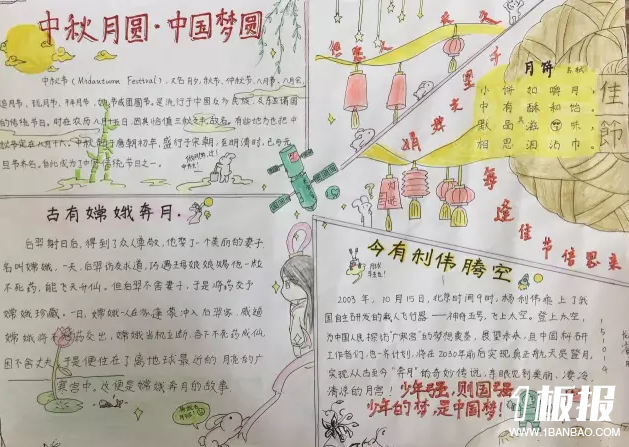 中秋月圆·中国梦圆
中秋节(Midautumn Festival),又名月夕、秋节、仲秋节、八月节、八月会、
追月节、玩月节、拜月节、女儿节或团圆节,是流行于中国众多民族、及东亚诸国
的传统节日,时在农历八月十五日,因其恰值三秋之半,故名。有些地方也把中
秋节定在八月十六。中秋始于唐朝初年,盛行于宋朝,至明清时,已与元
旦齐名,而成为中国传统节日之一。
古有嫦娥奔月.
后羿射日后,得到了众人尊敬,他娶了个美丽的妻子
名叫嫦娥,一天,后羿访友求道,巧遇王母娘娘赐他一粒
不死药,能飞天升仙。但后羿不舍妻子,于是将药交予
嫦娥珍藏。一日,嫦娥入后羿家,威逼
嫦娥将不死药交出,嫦娥当机立断,吞下不死药成仙,
因不舍丈夫,于是便住在了离地球最近的月亮的广
寒宫中,这便是嫦娥奔月的故事
但愿人长久
千里共婵娟
每逢佳节倍思亲
月饼
小饼如嚼月,
中有酥和饴。
默品其滋味,
相思泪沾巾。
佳
節
今有利伟腾空
2003年,10月15日,北京时间9时,杨利伟乘上了我
国自主研发的载人飞行器——神舟五号,飞上太空,登上太空,
为中国人民探访"广寒宫"的梦想奠基,展望未来,且中国科研
工作者们,也一本计划,将在2030年前后实现真正的九天揽月,
实现从古至今"奔月"的奇妙传说,亲眼见到美丽,凄冷,
清凉的月宫!
少年强,则国强
少年的梦,是中国梦!
板报
WWW.1BANBAO.COM